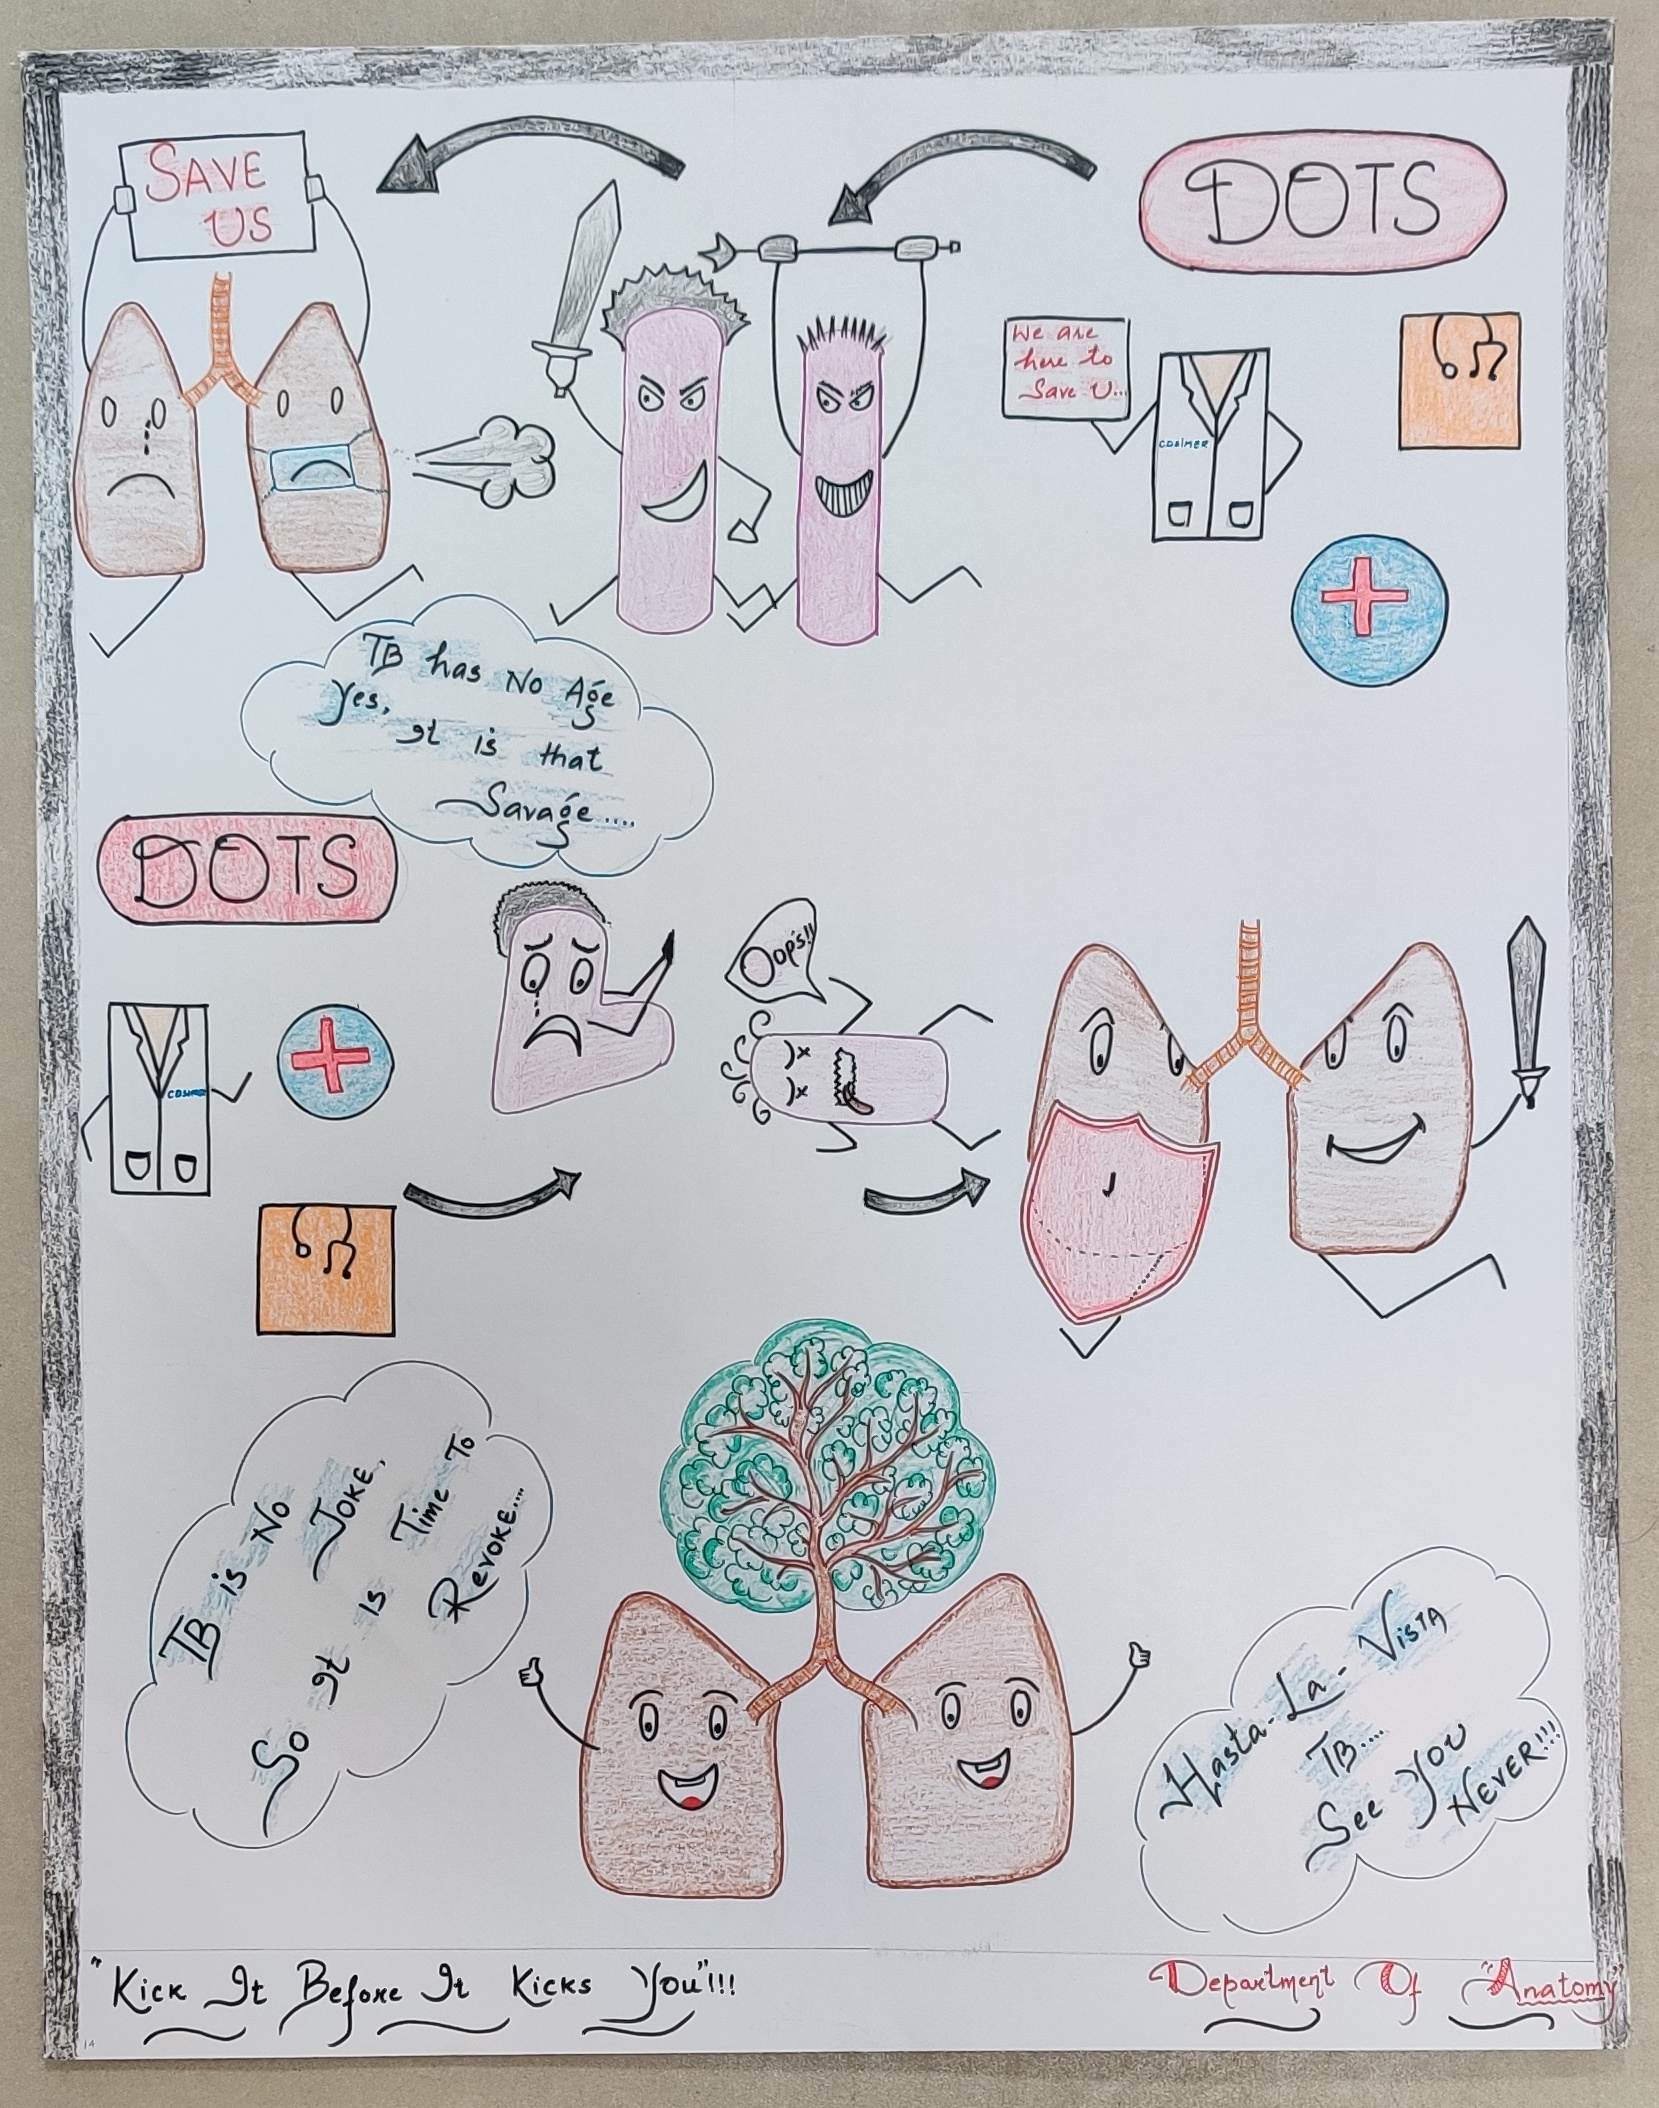 SAVE
US
DOTS
We are
here to
Save U...
COSIMER
TB has No Age
Yes,
It is that
Savage....
DOTS
Oops!!
COSIMER
TB is No
JOKE,
So It Is Time To
REVOKE....
Hasta-La-VISTA
TB....
See You
NEVER!!!
"Kick It Before It Kicks You"!!!
Department Of "Anatomy"
14